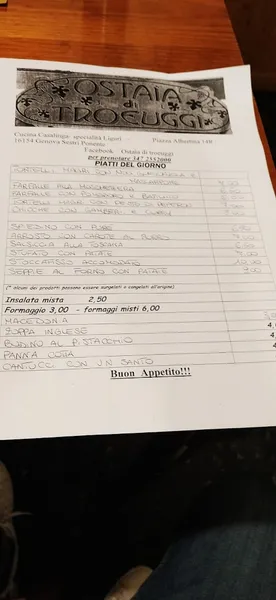 OSTAIA
di
TROEUGGI
Cucina Casalinga- specialità Liguri - Piazza Albertina 14R
16154 Genova Sestri Ponente
Facebook Ostaia di troeuggi
per prenotare 347 2552000
PIATTI DEL GIORNO
TORTELLI MAGRI CON NOCI, E
MASCARPONE
FARFALLE ALLA
FARFALLE CON POMODORO E BASILICO
TORTELLI MAGRI CON PESTO DI PEPERONI
GNOCCHE CON GAMBERI E CURRY
SPIEDINO CON PURÈ
ARROSTO CON CAROTE AL BURRO
SALSICCIA ALLA TOSCANA
STUFATO CON PATATE
STOCCAFISSO ACCOMODATO
SEPPIE AL FORNO CON PATATE
(* alcuni dei prodotti possono essere surgelati o congelati all'origine)
Insalata mista 2,50
Formaggio 3,00 - formaggi misti 6,00
MACEDONIA
ZUPPA INGLESE
BUDINO AL PISTACCHIO
PANNA COTTA
CANTUCCI CON VIN SANTO
Buon Appetito!!!